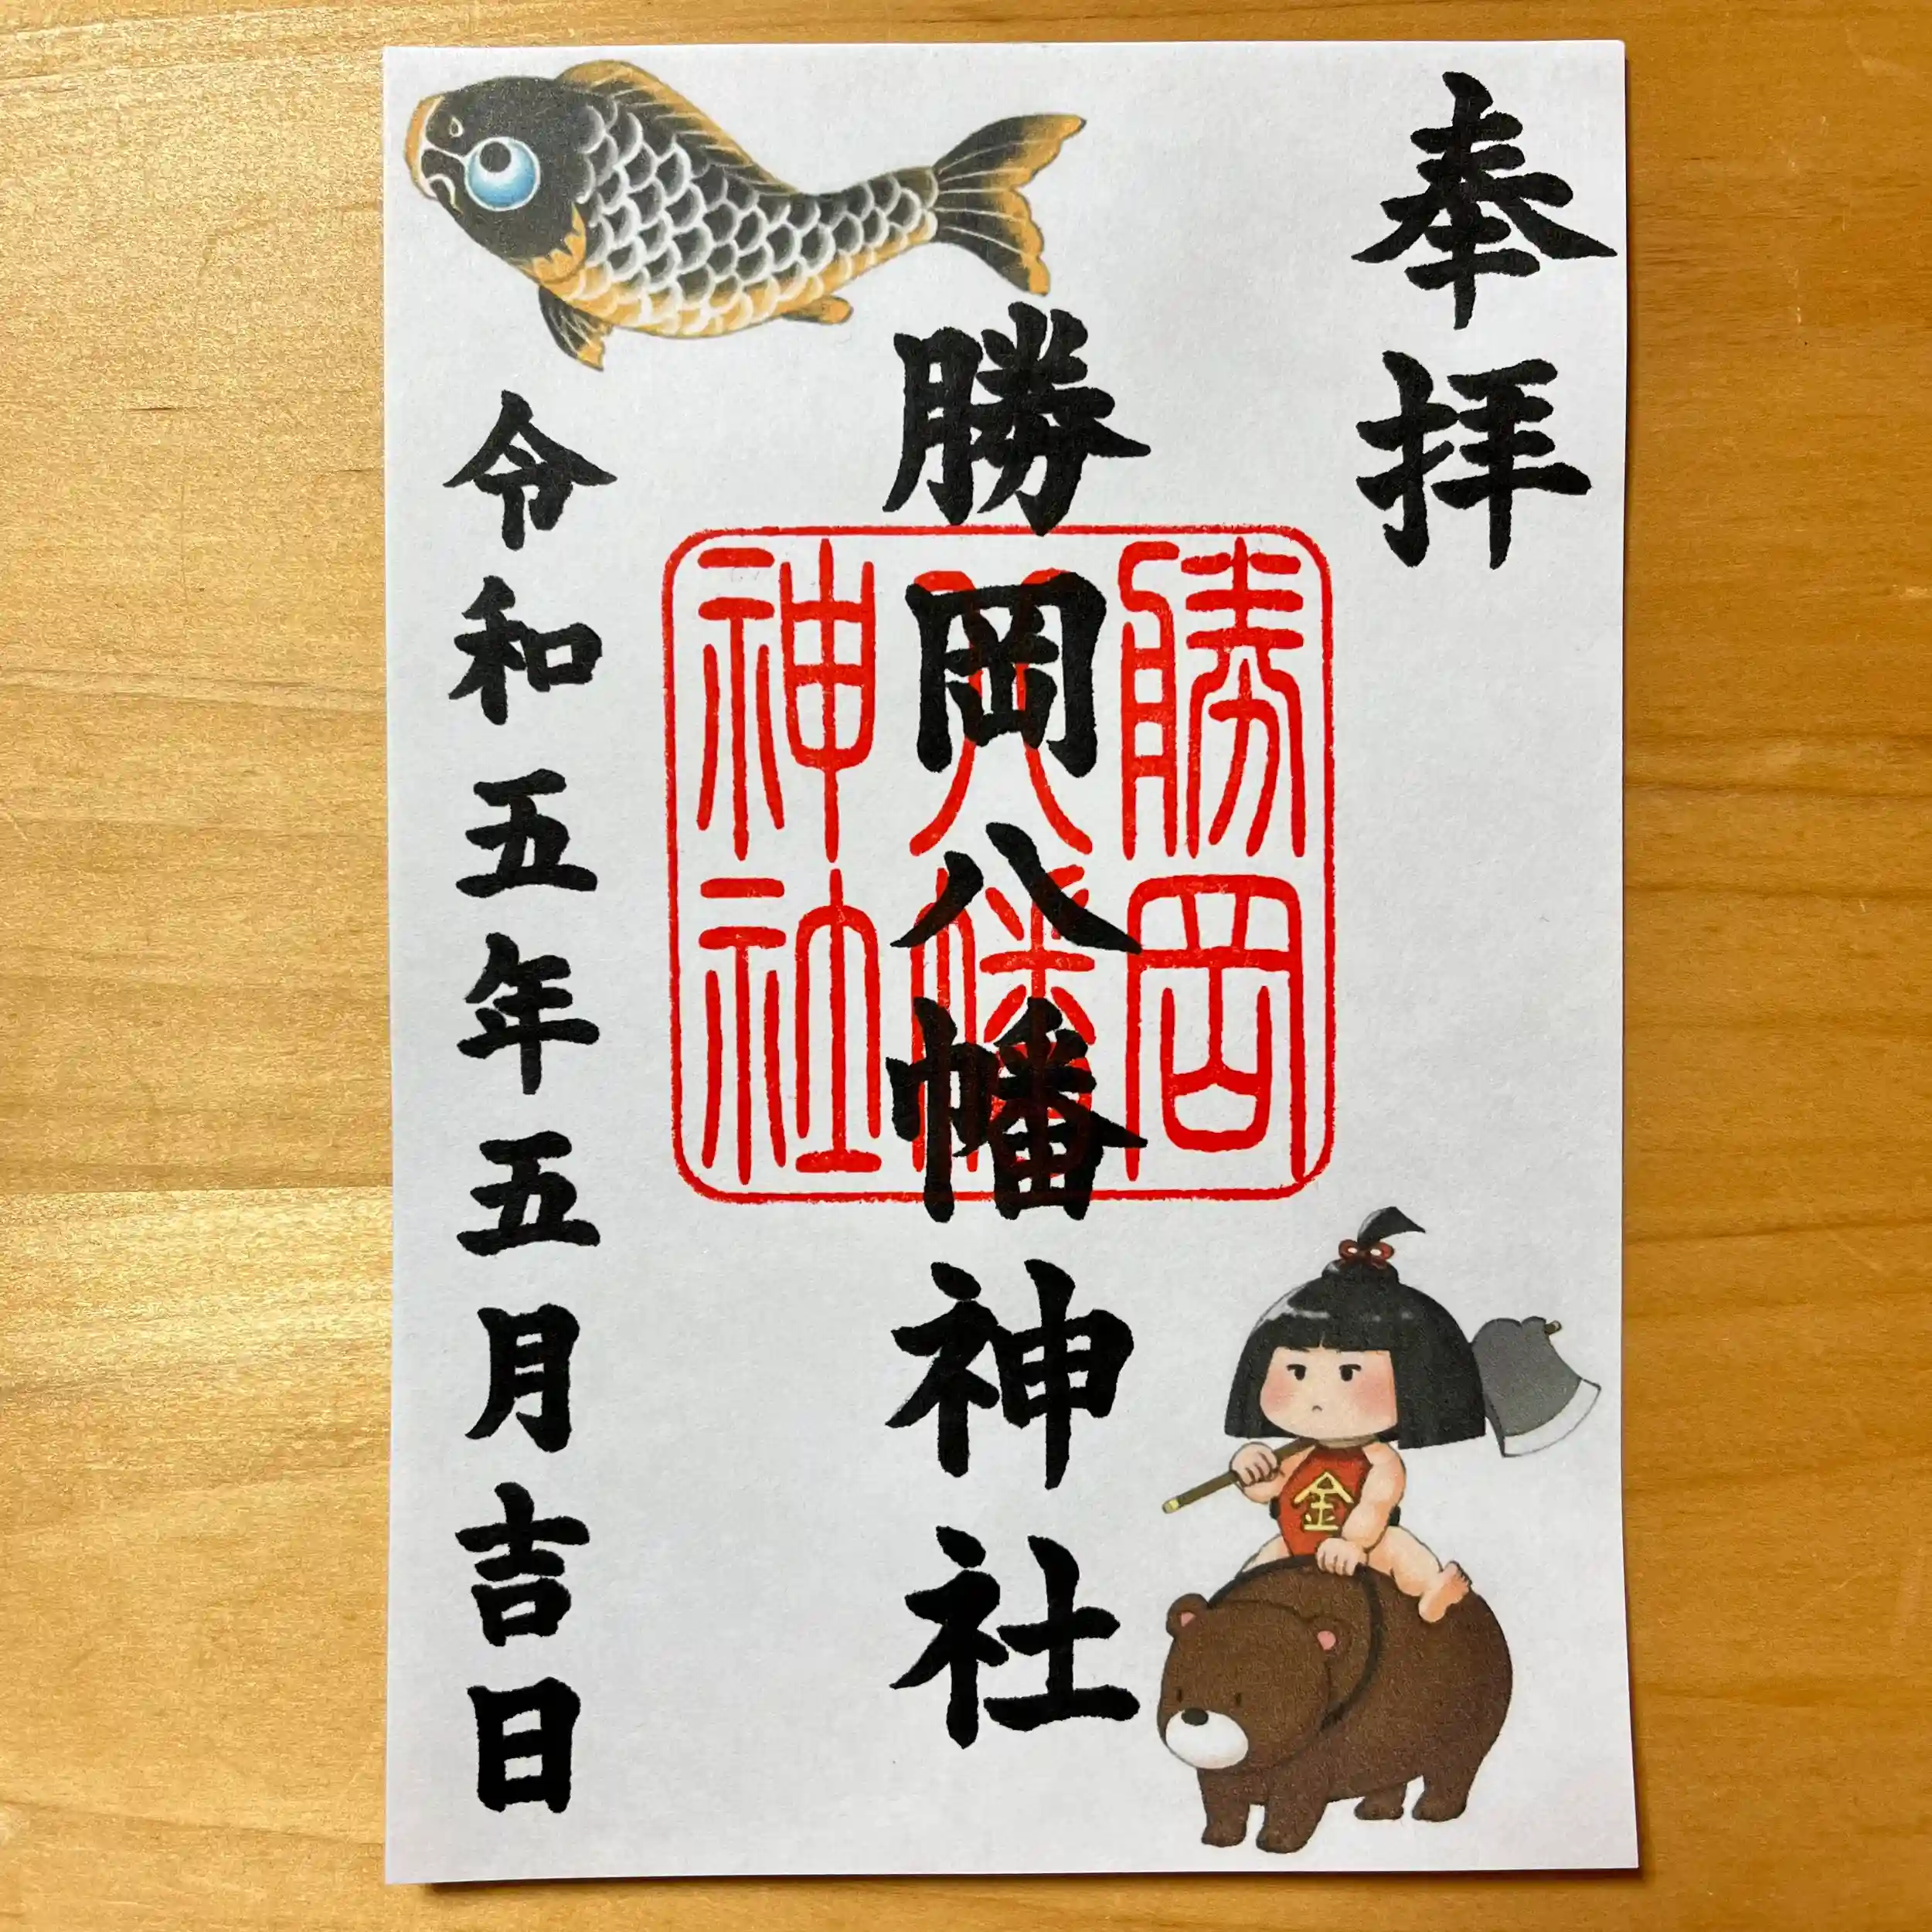 奉拝
勝岡八幡神社
勝岡
八幡
神社
令和五年五月吉日
金